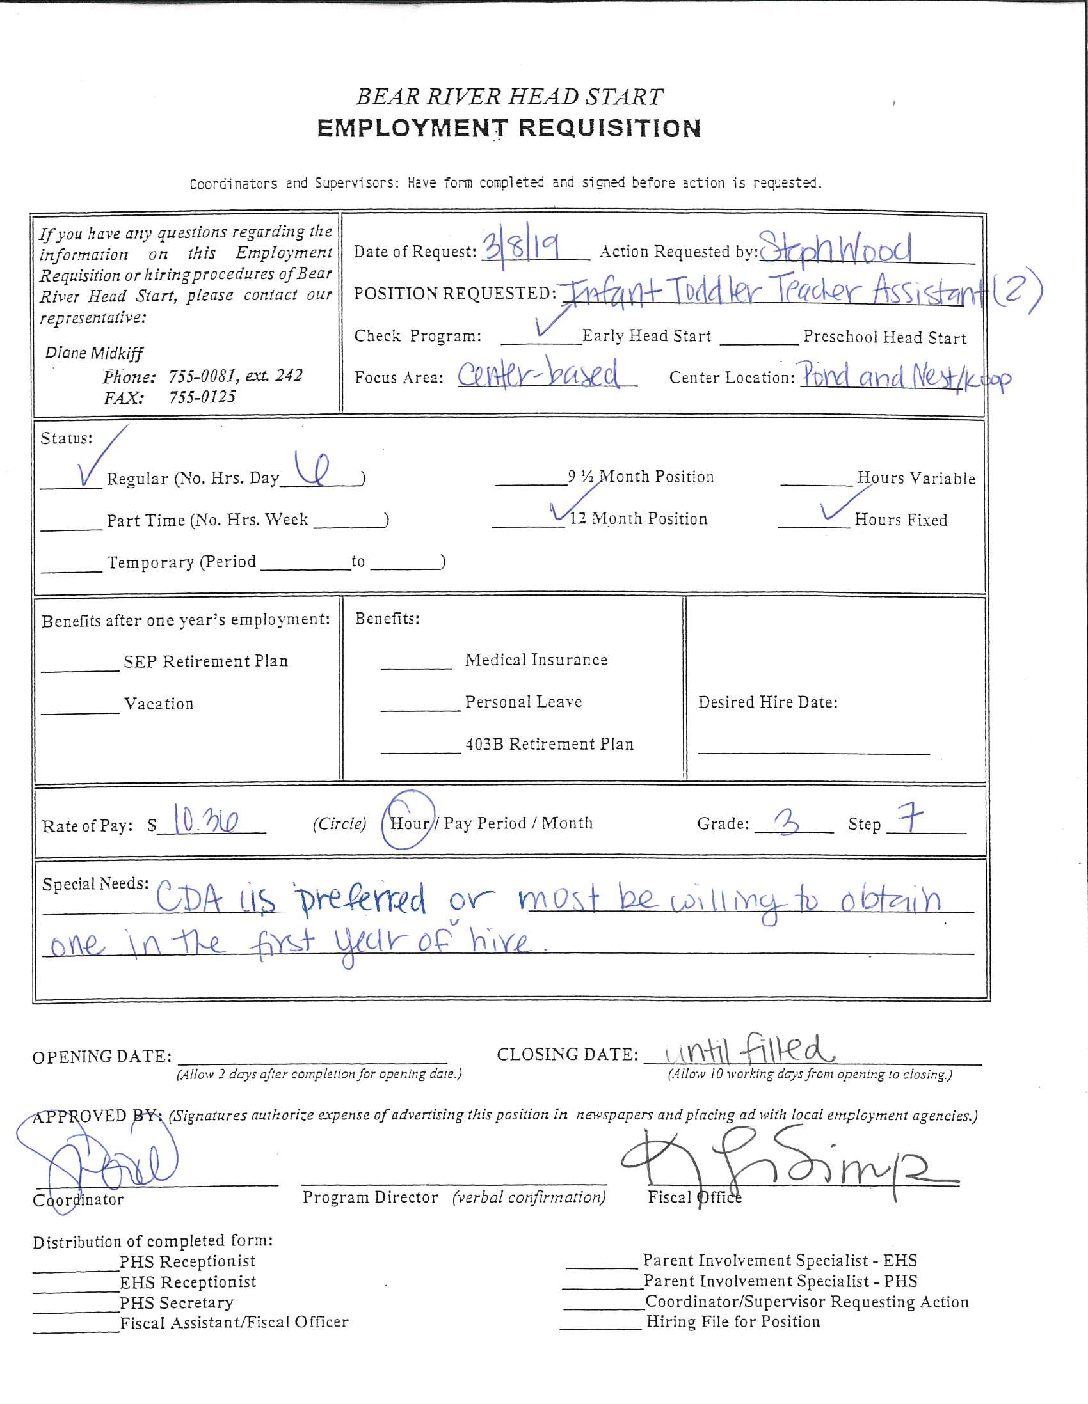 BEAR RIVER HEAD START
EMPLOYMENT REQUISITION
Coordinators and Supervisors: Have form completed and signed before action is requested.
If you have any questions regarding the
information on this Employment
Requisition or hiring procedures of Bear
River Head Start, please contact our
representative:
Diane Midkiff
Phone: 755-0081, ext. 242
FAX: 755-0125
Date of Request: 3/8/19 Action Requested by: Steph Wood
POSITION REQUESTED: Infant Toddler Teacher Assistant (2)
Check Program: ✓ Early Head Start ______ Preschool Head Start
Focus Area: Center-based Center Location: Pond and Nest/koop
Status:
✓ Regular (No. Hrs. Day 6 ) ______ 9 ½ Month Position ______ Hours Variable
______ Part Time (No. Hrs. Week ______) ✓ 12 Month Position ✓ Hours Fixed
______ Temporary (Period ______ to ______)
Benefits after one year's employment:
______ SEP Retirement Plan
______ Vacation
Benefits:
______ Medical Insurance
______ Personal Leave
______ 403B Retirement Plan
Desired Hire Date:
Rate of Pay: $ 10.36 (Circle) Hour / Pay Period / Month Grade: 3 Step 7
Special Needs: CDA is preferred or must be willing to obtain
one in the first year of hire.
OPENING DATE: ______ CLOSING DATE: until filled
(Allow 2 days after completion for opening date.) (Allow 10 working days from opening to closing.)
APPROVED BY: (Signatures authorize expense of advertising this position in newspapers and placing ad with local employment agencies.)
Coordinator Program Director (verbal confirmation) Fiscal Office
Distribution of completed form:
______ PHS Receptionist ______ Parent Involvement Specialist - EHS
______ EHS Receptionist ______ Parent Involvement Specialist - PHS
______ PHS Secretary ______ Coordinator/Supervisor Requesting Action
______ Fiscal Assistant/Fiscal Officer ______ Hiring File for Position